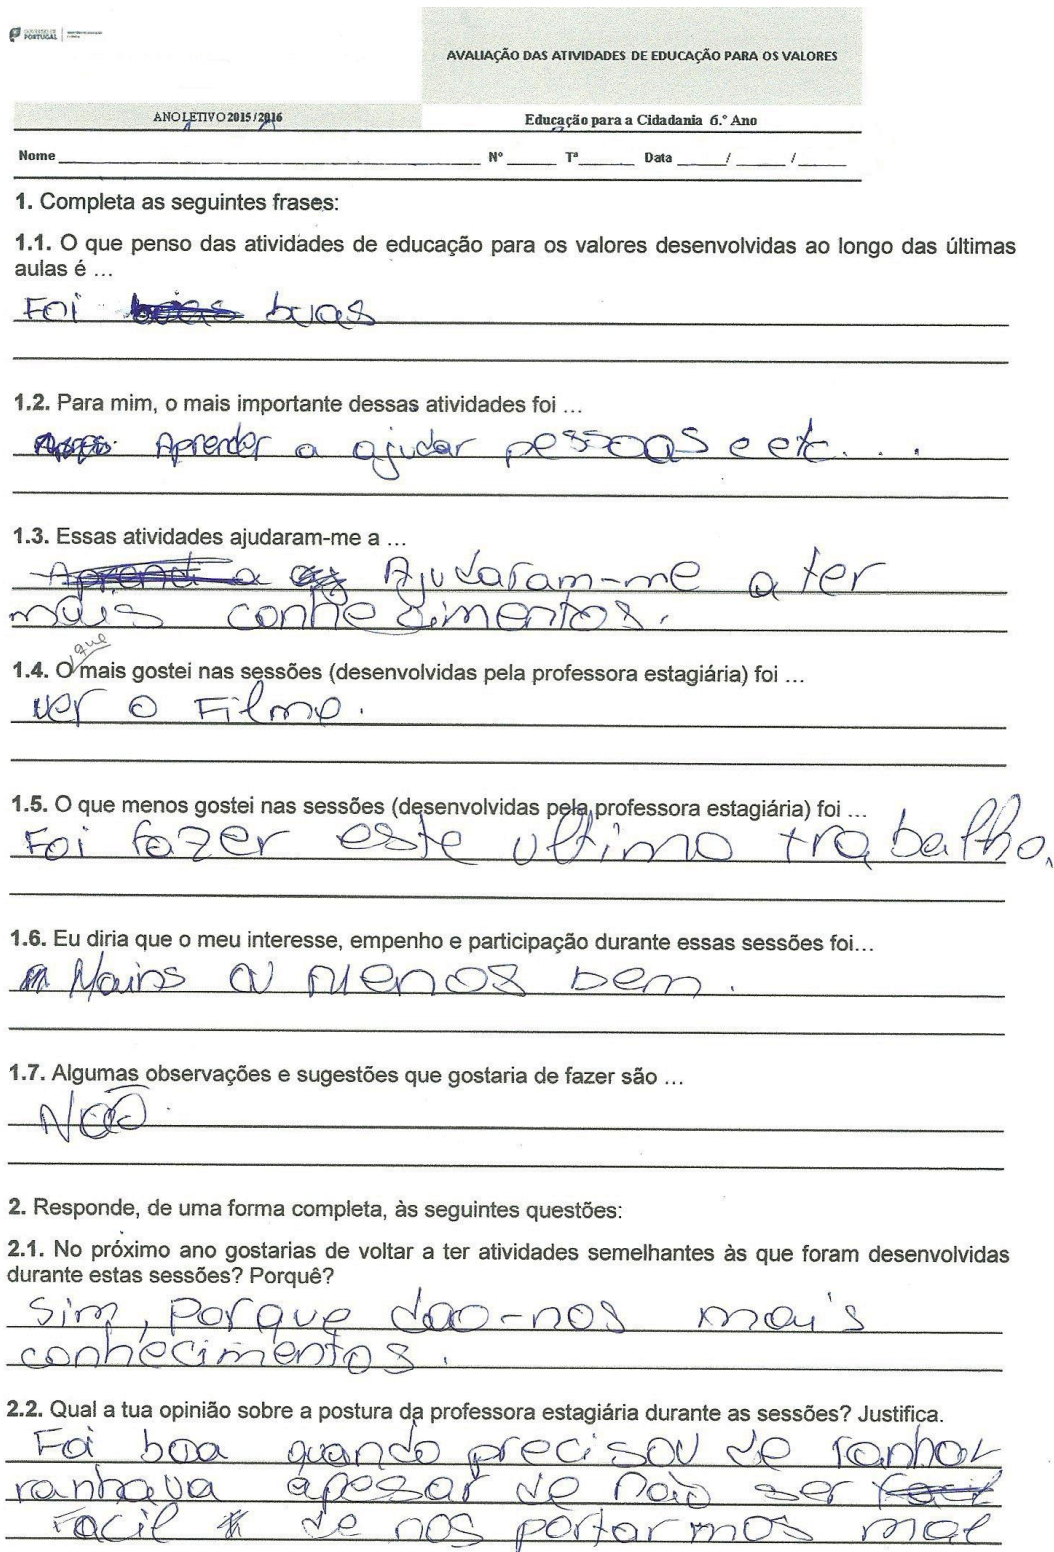 GOVERNO DE
PORTUGAL
AVALIAÇÃO DAS ATIVIDADES DE EDUCAÇÃO PARA OS VALORES
ANO LETIVO 2015 / 2016
Educação para a Cidadania 6.º Ano
Nome Nº Tª Data / /
1. Completa as seguintes frases:
1.1. O que penso das atividades de educação para os valores desenvolvidas ao longo das últimas
aulas é ...
Foi buas
1.2. Para mim, o mais importante dessas atividades foi ...
Aprender a ajudar pessoas e etc. . .
1.3. Essas atividades ajudaram-me a ...
Ajudaram-me a ter
mais conhecimentos.
que
1.4. O mais gostei nas sessões (desenvolvidas pela professora estagiária) foi ...
ver o Filme.
1.5. O que menos gostei nas sessões (desenvolvidas pela professora estagiária) foi ...
Foi fazer este ultimo trabalho.
1.6. Eu diria que o meu interesse, empenho e participação durante essas sessões foi...
Mains ou Menos bem.
1.7. Algumas observações e sugestões que gostaria de fazer são ...
Não.
2. Responde, de uma forma completa, às seguintes questões:
2.1. No próximo ano gostarias de voltar a ter atividades semelhantes às que foram desenvolvidas
durante estas sessões? Porquê?
Sim, Porque dao-nos mais
conhecimentos.
2.2. Qual a tua opinião sobre a postura da professora estagiária durante as sessões? Justifica.
Foi boa quando precisou de ranhar
ranhava apesar de não ser
Facil de nos portarmos mal